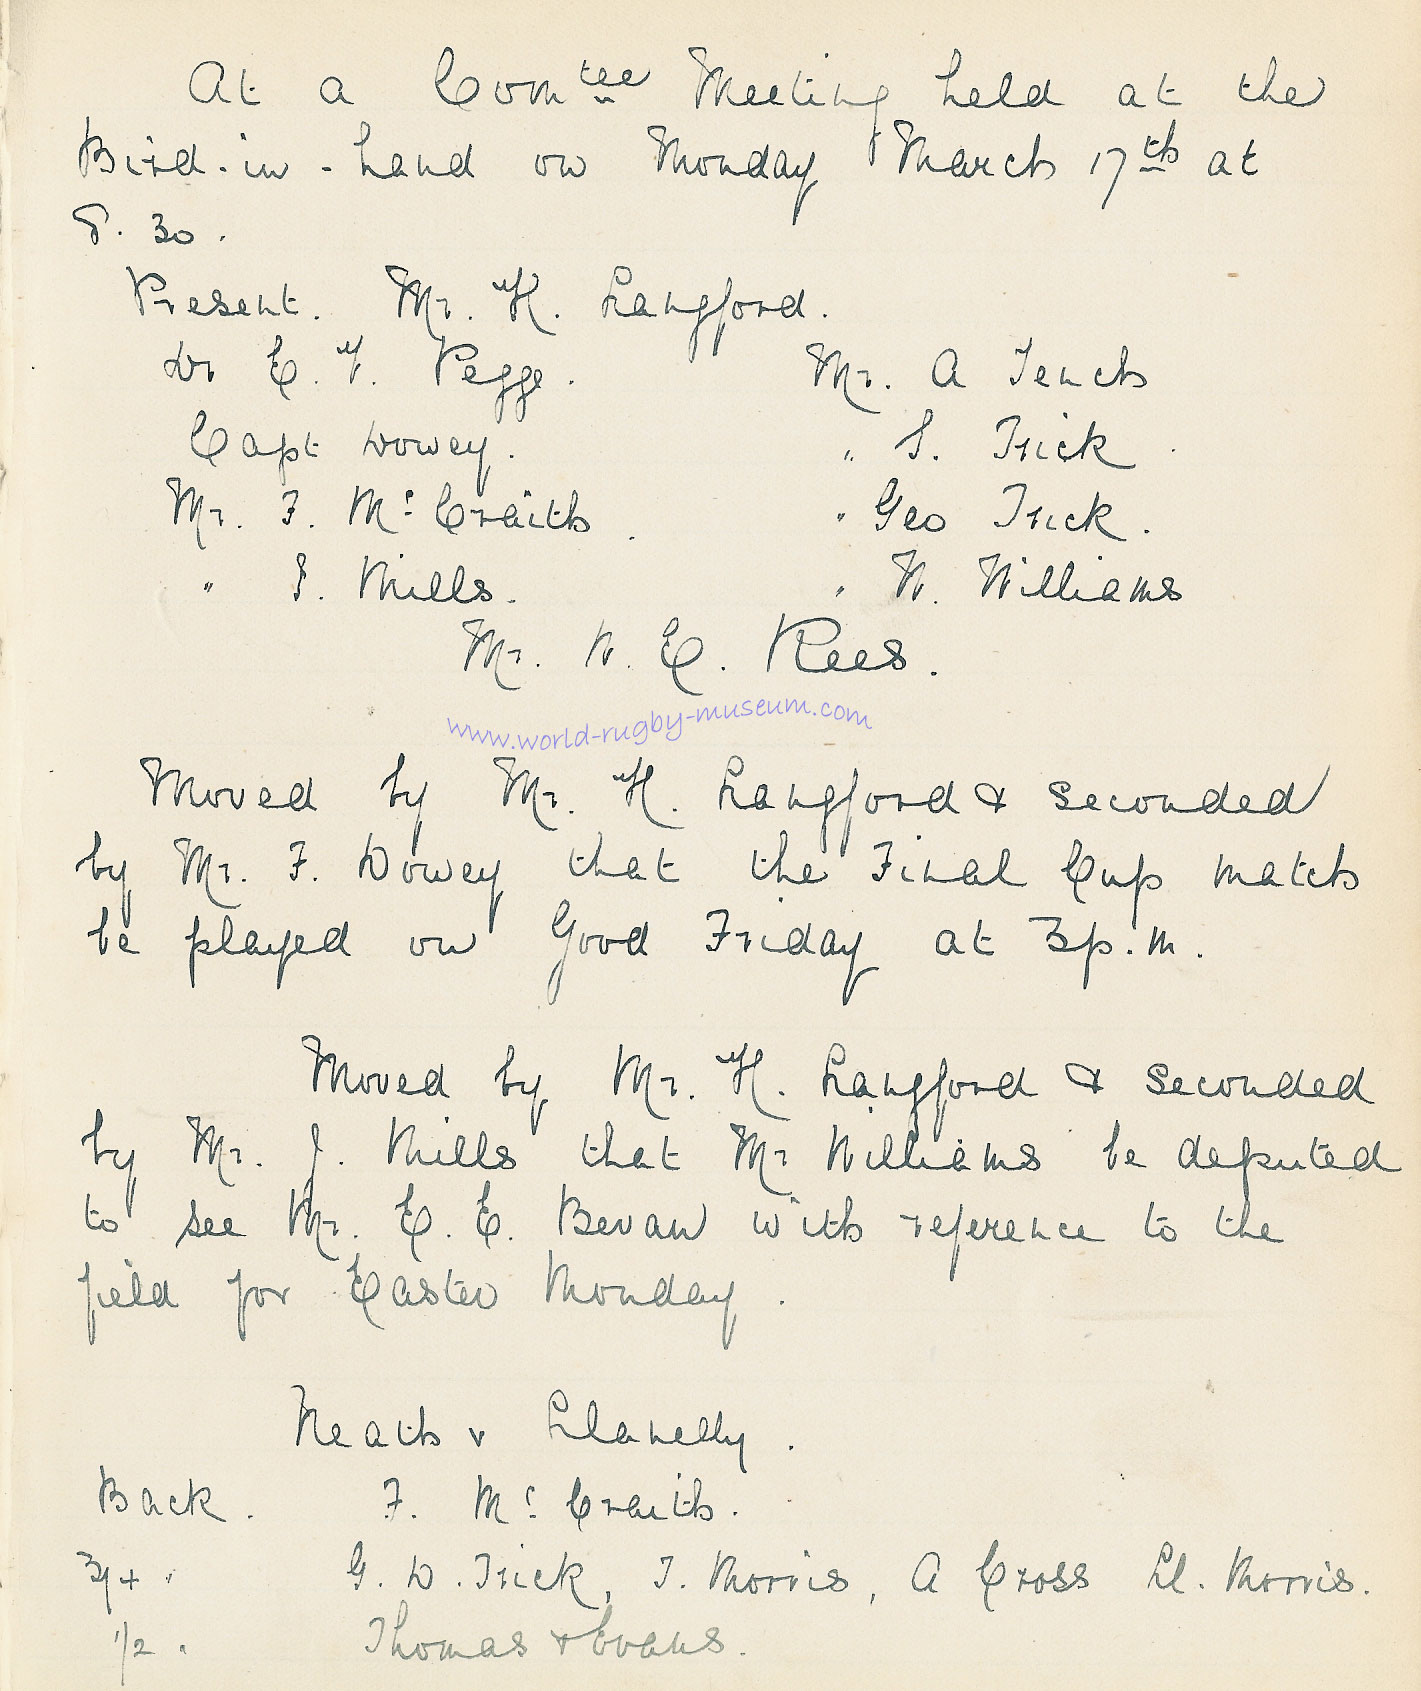 At a Com<sup>tee</sup> Meeting held at the
Bird-in-hand on Monday March 17<sup>th</sup> at
8.30.
Present. Mr. H. Langford.
Dr E. V. Pegge. Mr. A Tench
Capt Dowey. " S. Trick
Mr. F. Mc Craith. " Geo Trick.
" J. Mills. " W. Williams
Mr. W. E. Rees.
www.world-rugby-museum.com
Moved by Mr. H. Langford & seconded
by Mr. F. Dowey that the Final Cup match
be played on Good Friday at 3p.m.
Moved by Mr. H. Langford & seconded
by Mr. J. Mills that Mr Williams be deputed
to see Mr. E. E. Bevan with reference to the
field for Easter Monday.
Neath v Llanelly.
Back. F. Mc Craith.
3/4 " G. D. Trick, T. Morris, A Cross Ll. Morris.
1/2 " Thomas & Evans.